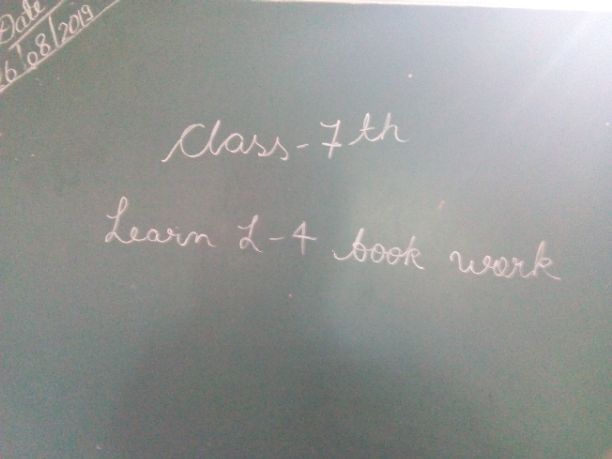 Date
6/08/2019
Class-7th
Learn L-4 book work